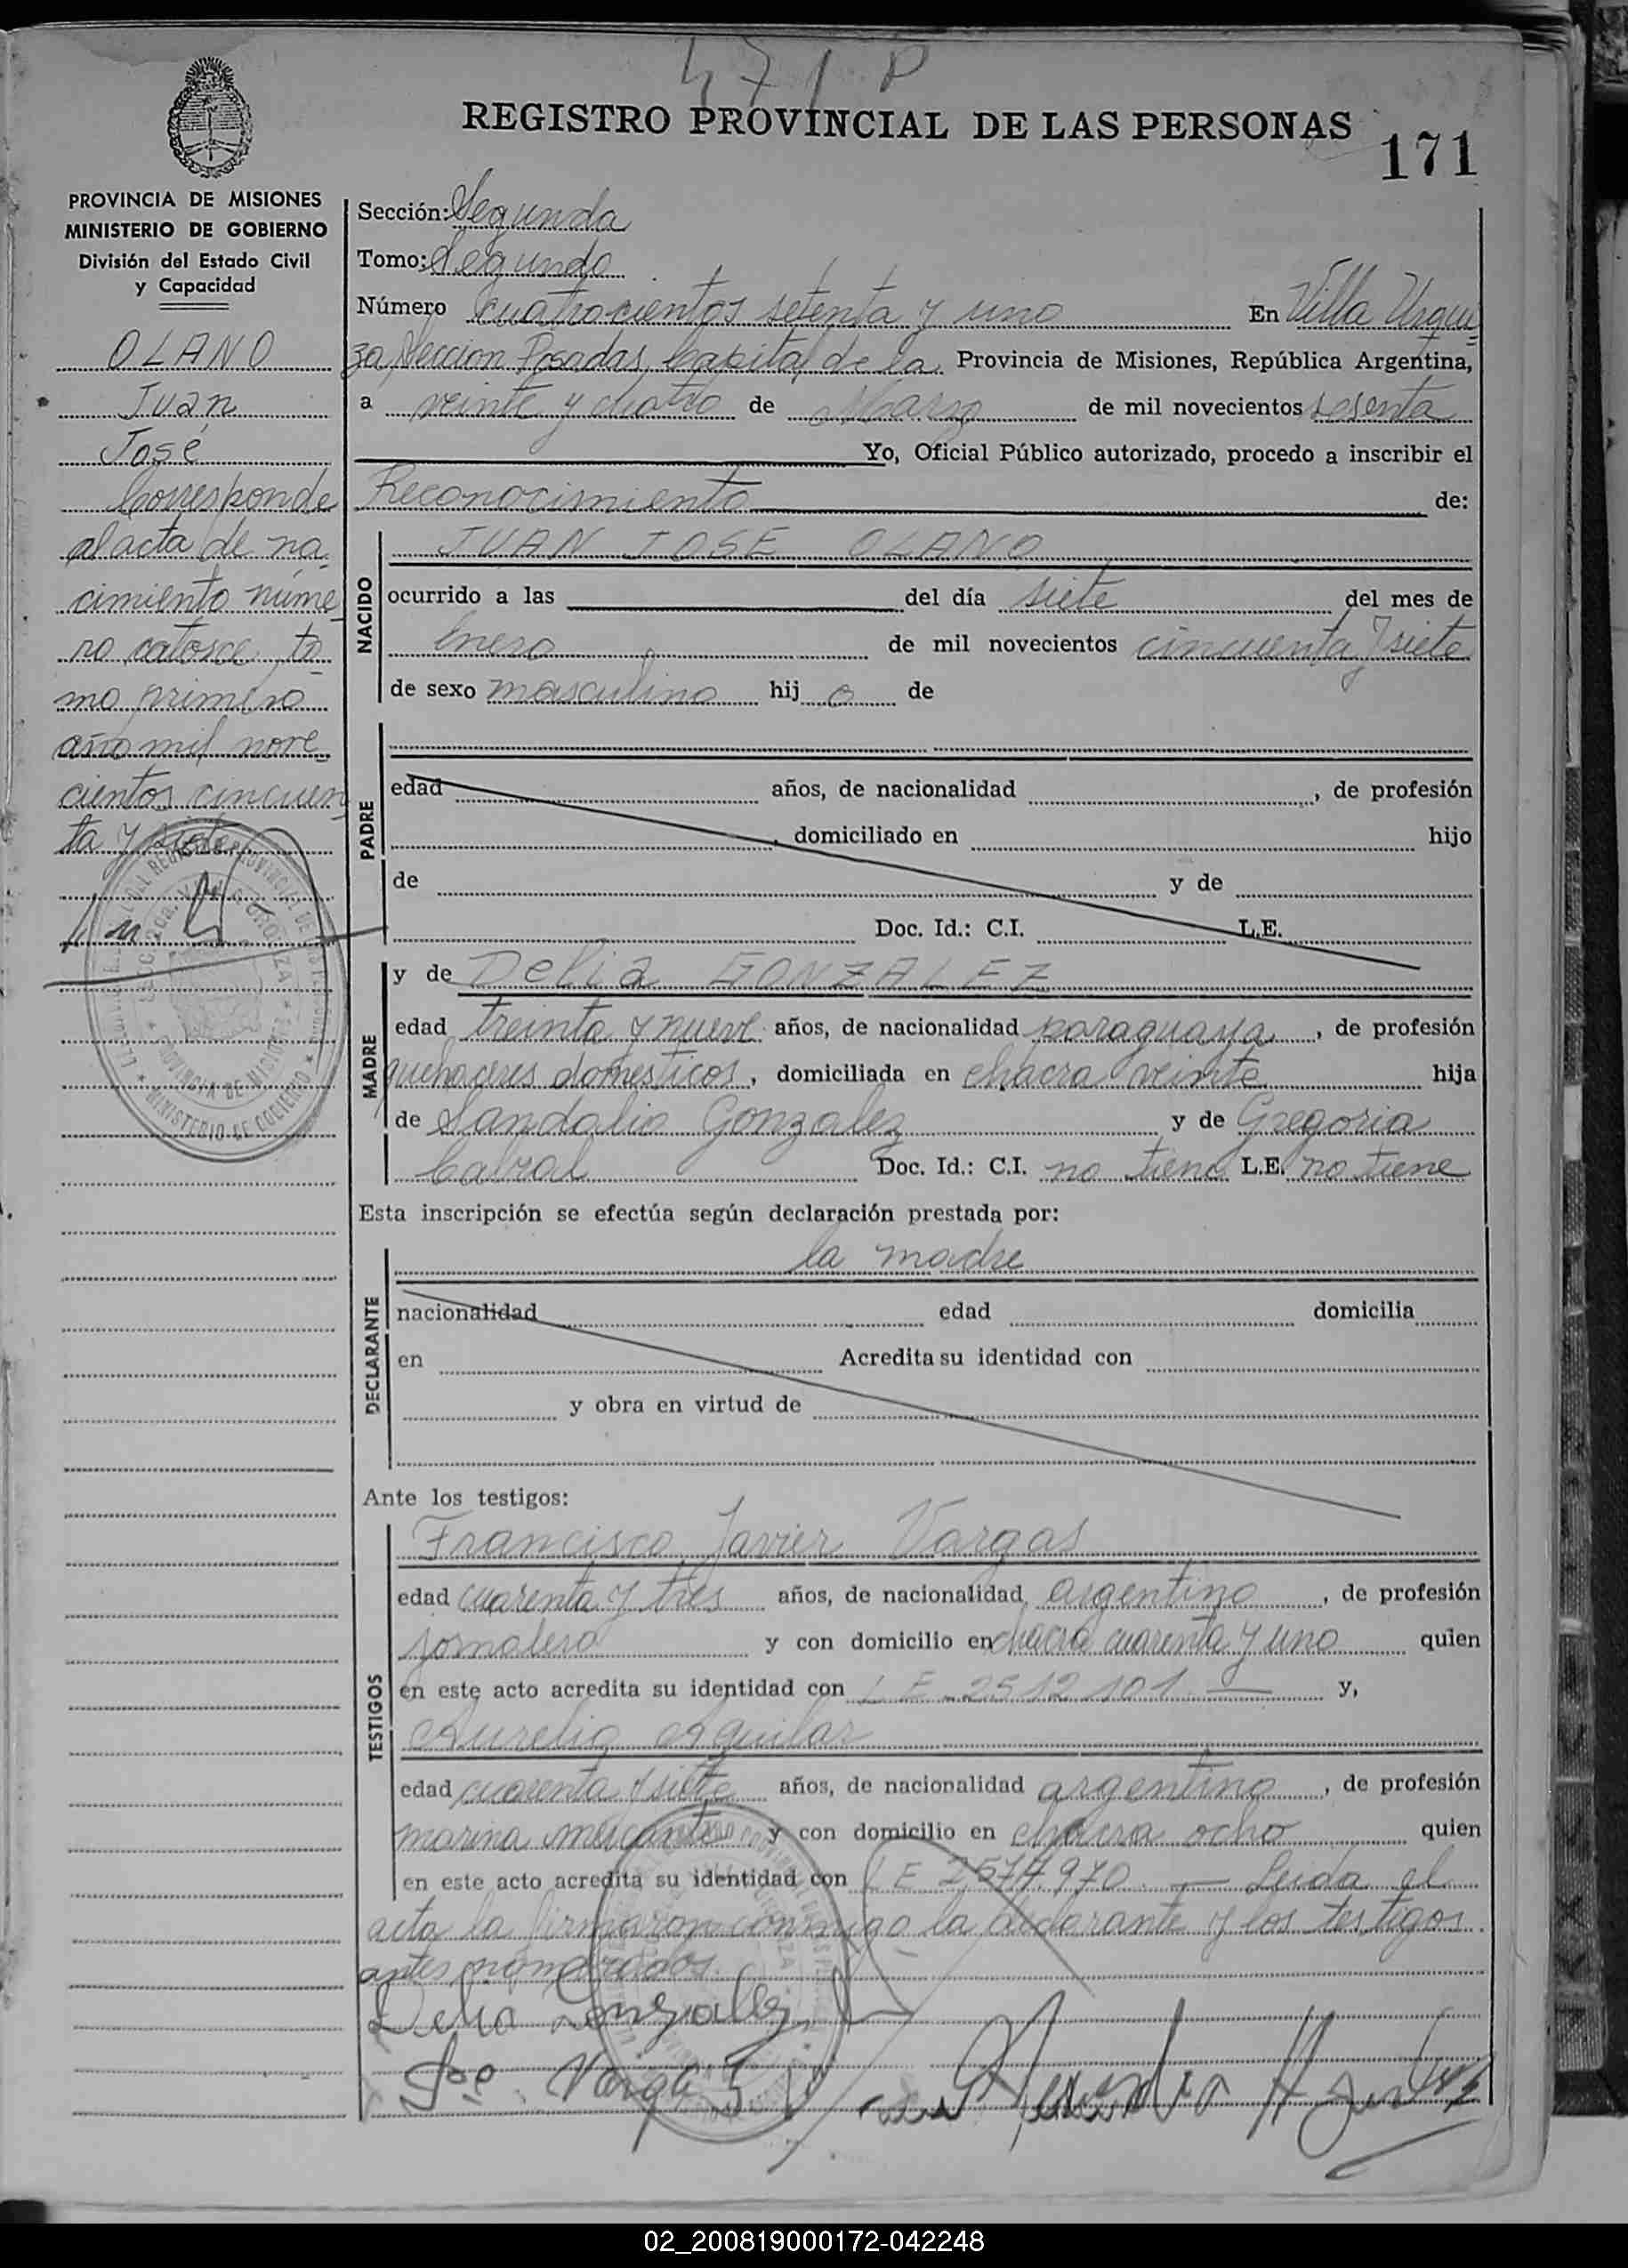 471 P
REGISTRO PROVINCIAL DE LAS PERSONAS
171
PROVINCIA DE MISIONES
MINISTERIO DE GOBIERNO
División del Estado Civil
y Capacidad
OLANO
Juan
José
Corresponde
al acta de na
cimiento núme
ro catorce, to
mo primero
año mil nove
cientos cincuen
ta y siete
Sección: Segunda
Tomo: Segundo
Número cuatrocientos setenta y uno En Villa Urqui
za Seccion Posadas, Capital de la Provincia de Misiones, República Argentina,
a veinte y cuatro de Marzo de mil novecientos sesenta
Yo, Oficial Público autorizado, procedo a inscribir el
Reconocimiento de:
NACIDO
JUAN JOSE OLANO
ocurrido a las del día siete del mes de
Enero de mil novecientos cincuenta y siete
de sexo masculino hij o de
PADRE
edad años, de nacionalidad , de profesión
, domiciliado en hijo
de y de
Doc. Id.: C.I. L.E.
MADRE
y de Delia GONZALEZ
edad treinta y nueve años, de nacionalidad paraguaya, de profesión
quehaceres domesticos, domiciliada en chacra veinte hija
de Sandalio Gonzalez y de Gregoria
Cabral Doc. Id.: C.I. no tiene L.E. no tiene
Esta inscripción se efectúa según declaración prestada por:
DECLARANTE
la madre
nacionalidad edad domicilia
en Acredita su identidad con
y obra en virtud de
Ante los testigos:
TESTIGOS
Francisco Javier Vargas
edad cuarenta y tres años, de nacionalidad argentino, de profesión
jornalero y con domicilio en chacra cuarenta y uno quien
en este acto acredita su identidad con L E 2512101 y,
Aurelio Aguilar
edad cuarenta y siete años, de nacionalidad argentino, de profesión
marina mercante y con domicilio en chacra ocho quien
en este acto acredita su identidad con L E 2574.970 — Leida el
acta la firmaron conmigo la declarante y los testigos
antes nombrados.
Delia Gonzalez
Vargas
02_200819000172-042248